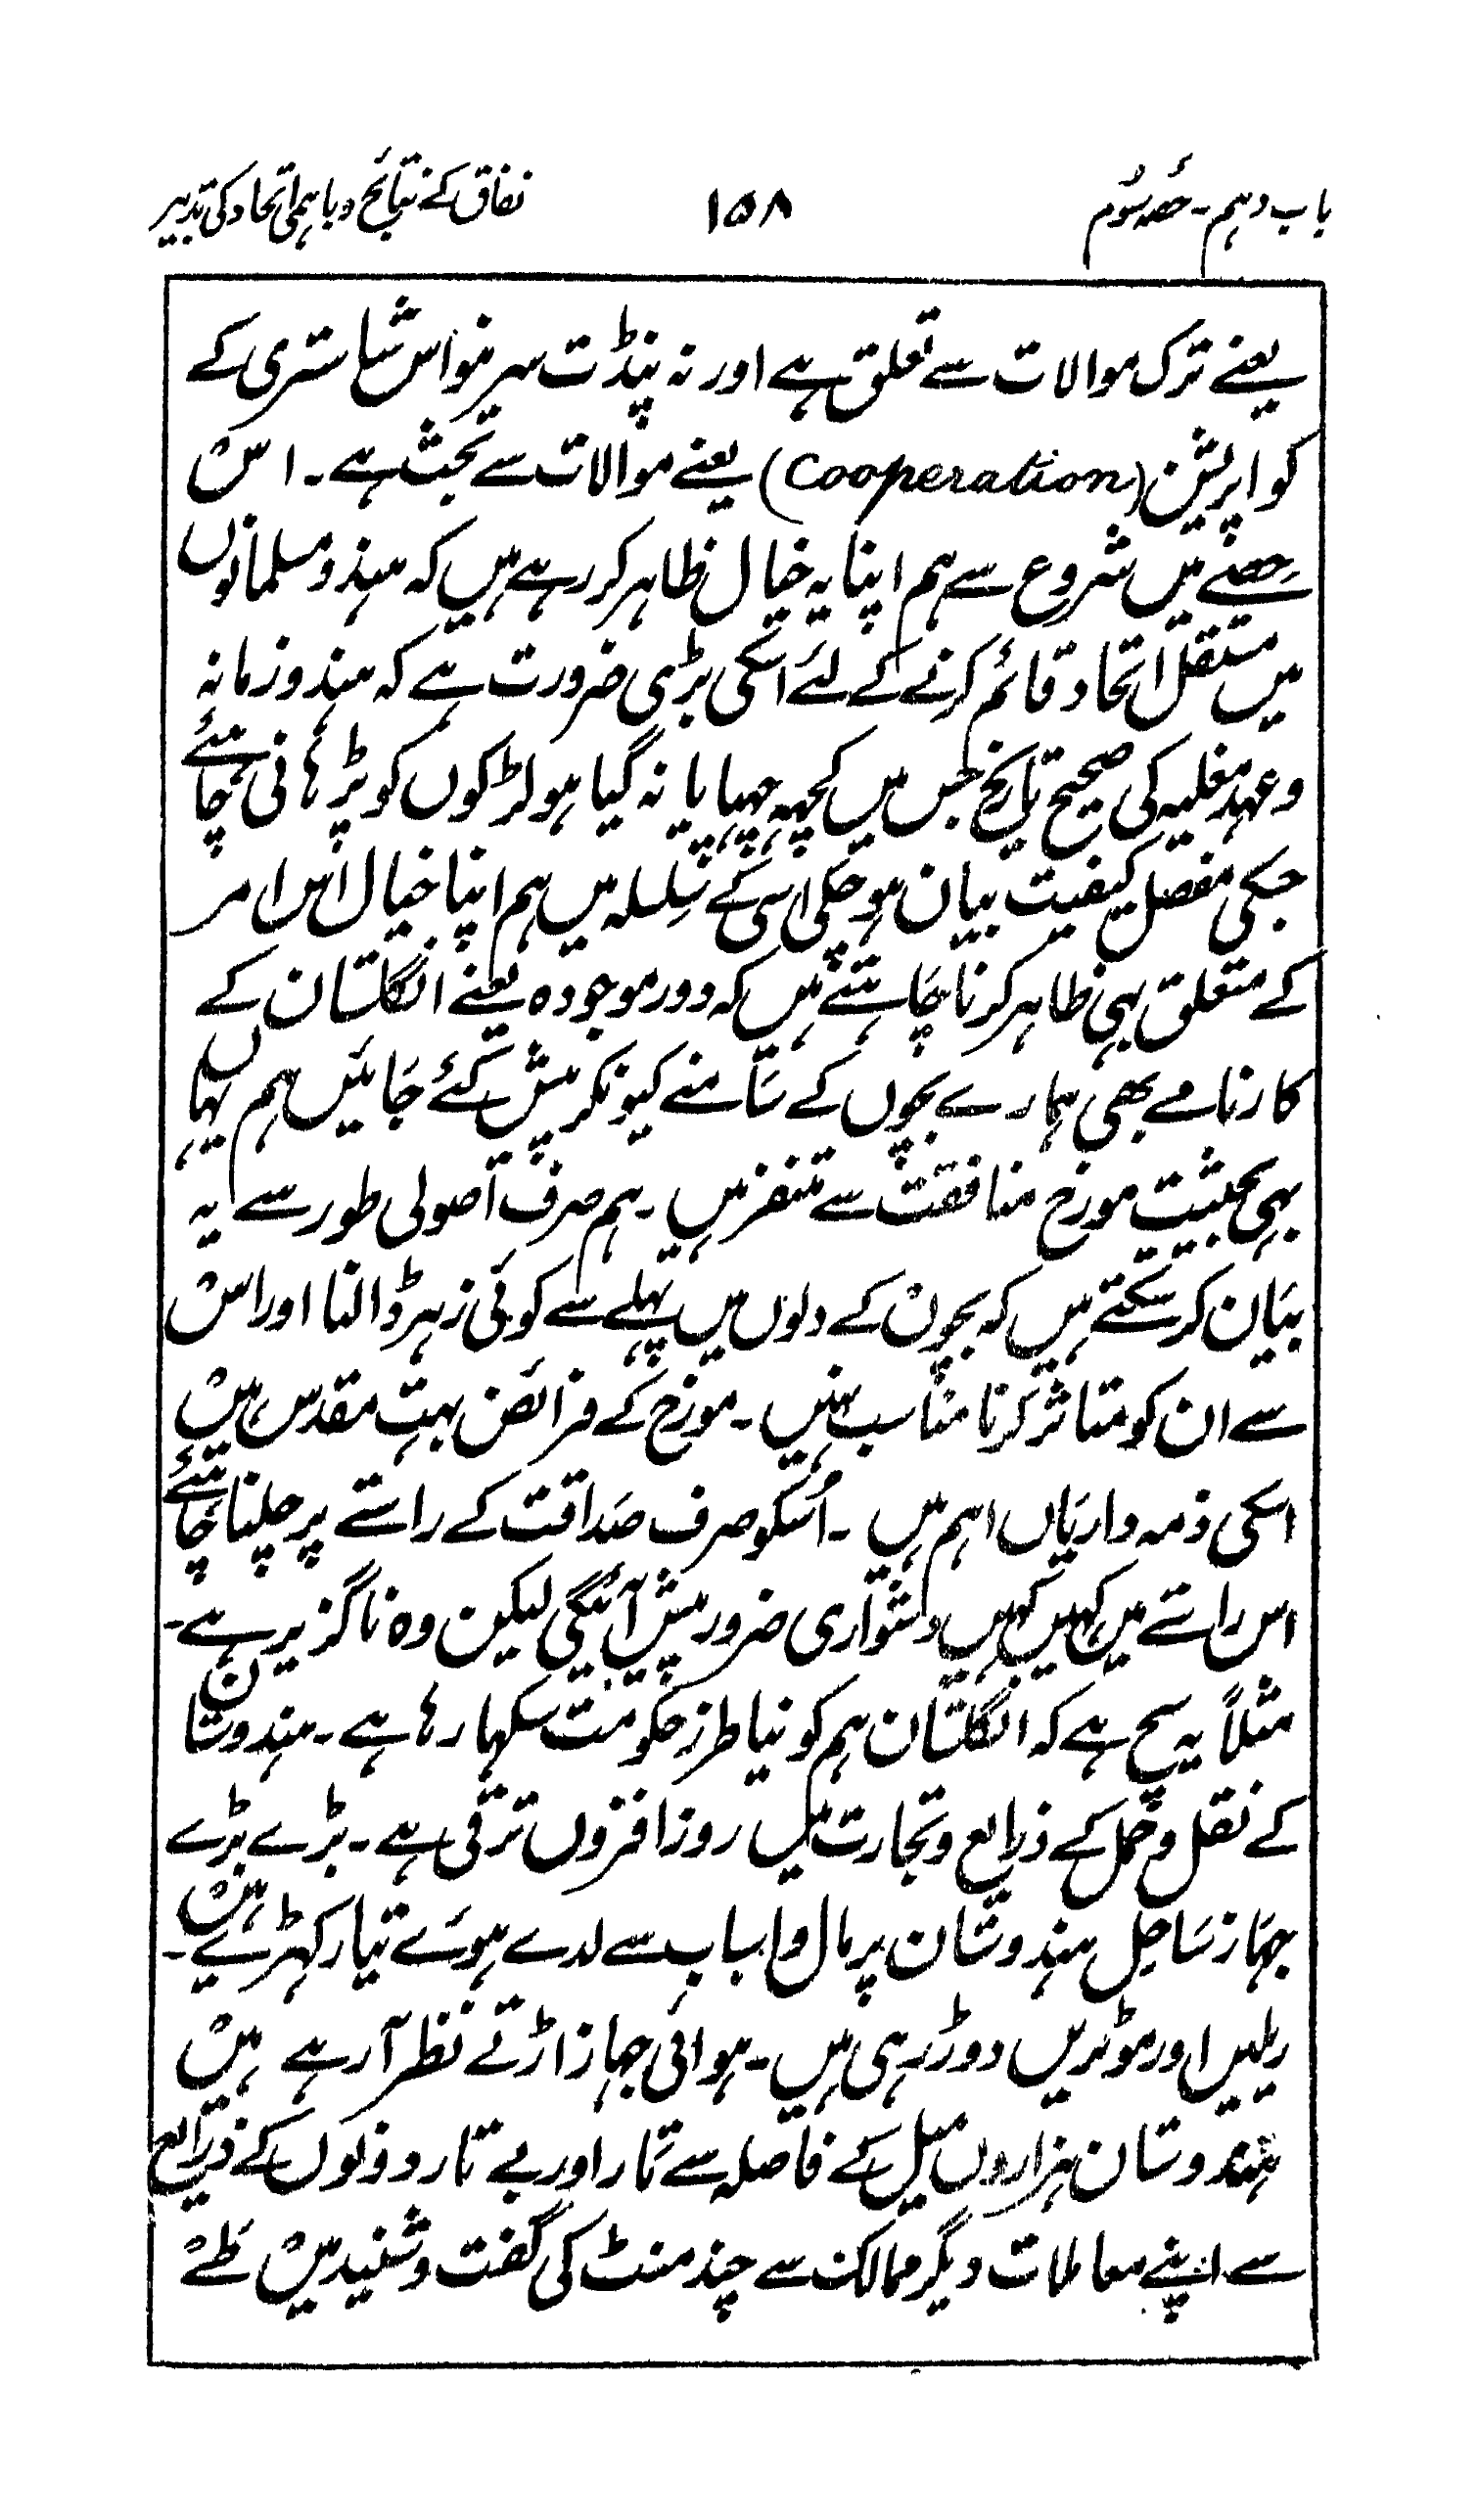 باب دہم۔ حصہ سوم ۱۵۸ نفاق کے نتائج و باہمی اتحاد کی تدبیر
یعنے ترک موالات سے تعلق ہے اور نہ پنڈت سرینواس شاستری کے
کواپریشن (Cooperation) یعنے موالات سے بحث ہے۔ اس
حصے میں شروع سے ہم اپنا یہ خیال ظاہر کر رہے ہیں کہ ہندو مسلمانوں
میں مستقل اتحاد قائم کرنے کے لئے اسکی بڑی ضرورت ہے کہ ہندو زمانہ
و عہد مغلیہ کی صحیح تاریخ جس میں کچہہ چہپایا نہ گیا ہو لڑکوں کو پڑہانی چاہئے
جسکی مفصل کیفیت بیان ہو چکی اسی کے سلسلہ میں ہم اپنا خیال اس امر
کے متعلق بہی ظاہر کرنا چاہتے ہیں کہ دور موجودہ یعنے انگلستان کے
کارنامے بھی ہمارے بچوں کے سامنے کیونکر پیش کئے جائیں ہم یہاں
بہی بحیثیت مورخ منافقت سے متنفر ہیں۔ ہم صرف اصولی طور سے یہ
بیان کر سکتے ہیں کہ بچوں کے دلوں میں پہلے سے کوئی زہر ڈالنا اور اس
سے ان کو متاثر کرنا مناسب نہیں۔ مورخ کے فرائض بہت مقدس ہیں
اسکی ذمہ داریاں اہم ہیں۔ اُسکو صرف صداقت کے راستے پر چلنا چاہئے
اس راستے میں کہیں کہیں دشواری ضرور پیش آئیگی لیکن وہ ناگزیر ہے۔
مثلاً یہ سچ ہے کہ انگلستان ہم کو نیا طرز حکومت سکہا رہا ہے۔ ہندوستان
کے نقل و حمل کے ذرایع و تجارت میں روز افزوں ترقی ہے۔ بڑے بڑے
جہاز ساحل ہندوستان پر مال و اسباب سے لدے ہوئے تیار کہڑے ہیں۔
ریلیں اور موٹریں دوڑ رہی ہیں۔ ہوائی جہاز اڑتے نظر آ رہے ہیں
ہندوستان ہزاروں میل کے فاصلہ سے تار اور بے تار دونوں کے ذرایع
سے اپنے معاملات دیگر ممالک سے چند منٹ کی گفت و شنید میں طے